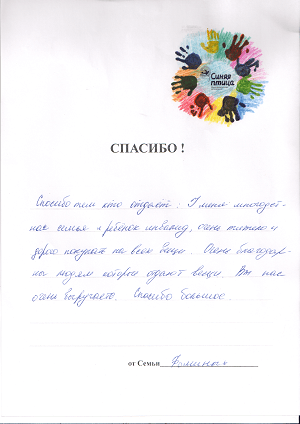 Синяя
птица
СПАСИБО !
Спасибо тем кто отдаёт: У меня многодет-
ная семья и ребёнок инвалид, очень тяжело и
дорого покупать на всех вещи. Очень благодар-
ны людям которые отдают вещи. Вы нас
очень выручаете. Спасибо большое.
от Семьи